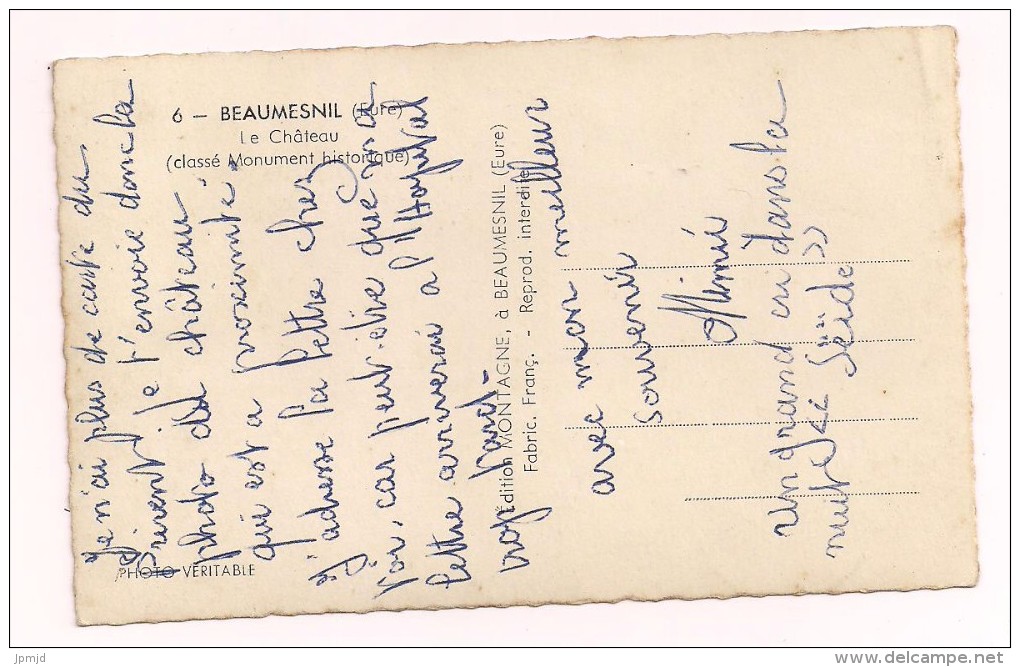 6 – BEAUMESNIL (Eure)
Le Château
(classé Monument historique)
PHOTO VÉRITABLE
Édition MONTAGNE, à BEAUMESNIL (Eure)
Fabric. Franç. - Reprod. interdite
Je n'ai plus de carte du
je t'envoie donc la
photo du château
qui est a proximité.
J'adresse la lettre chez
car peut-etre que ma
lettre arriverai a l'Hopital
trop tard -
avec mon meilleur
souvenir
Mimie
un grand cri dans la
nuit
delcampe.net
jpmjd